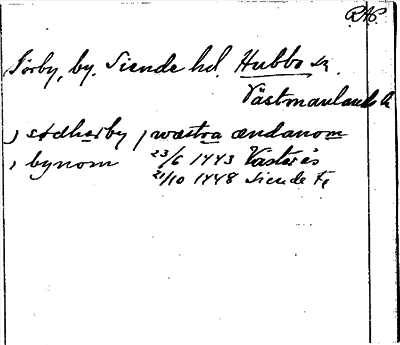 RAP.
Sörby, by. Siende hd. Hubbo sn.
Västmanlands l.
, sødherby , wæstra ændanom
, bynom 23/6 1443 Västerås
21/10 1448 Siende Ft